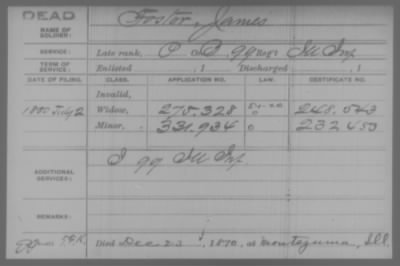 DEAD
Foster, James
NAME OF SOLDIER:
SERVICE: Late rank, P Co. B, 99 Reg't Ill Inf.
TERM OF SERVICE: Enlisted , 1 Discharged , 1
DATE OF FILING. CLASS. APPLICATION NO. LAW. CERTIFICATE NO.
Invalid,
1880 July 2 Widow, 275.328 248.543
Minor, 331.934 0 232453
ADDITIONAL SERVICES: I 99 Ill Inf.
REMARKS:
Died Dec. 23, 1870, at Montezuma, Ill.